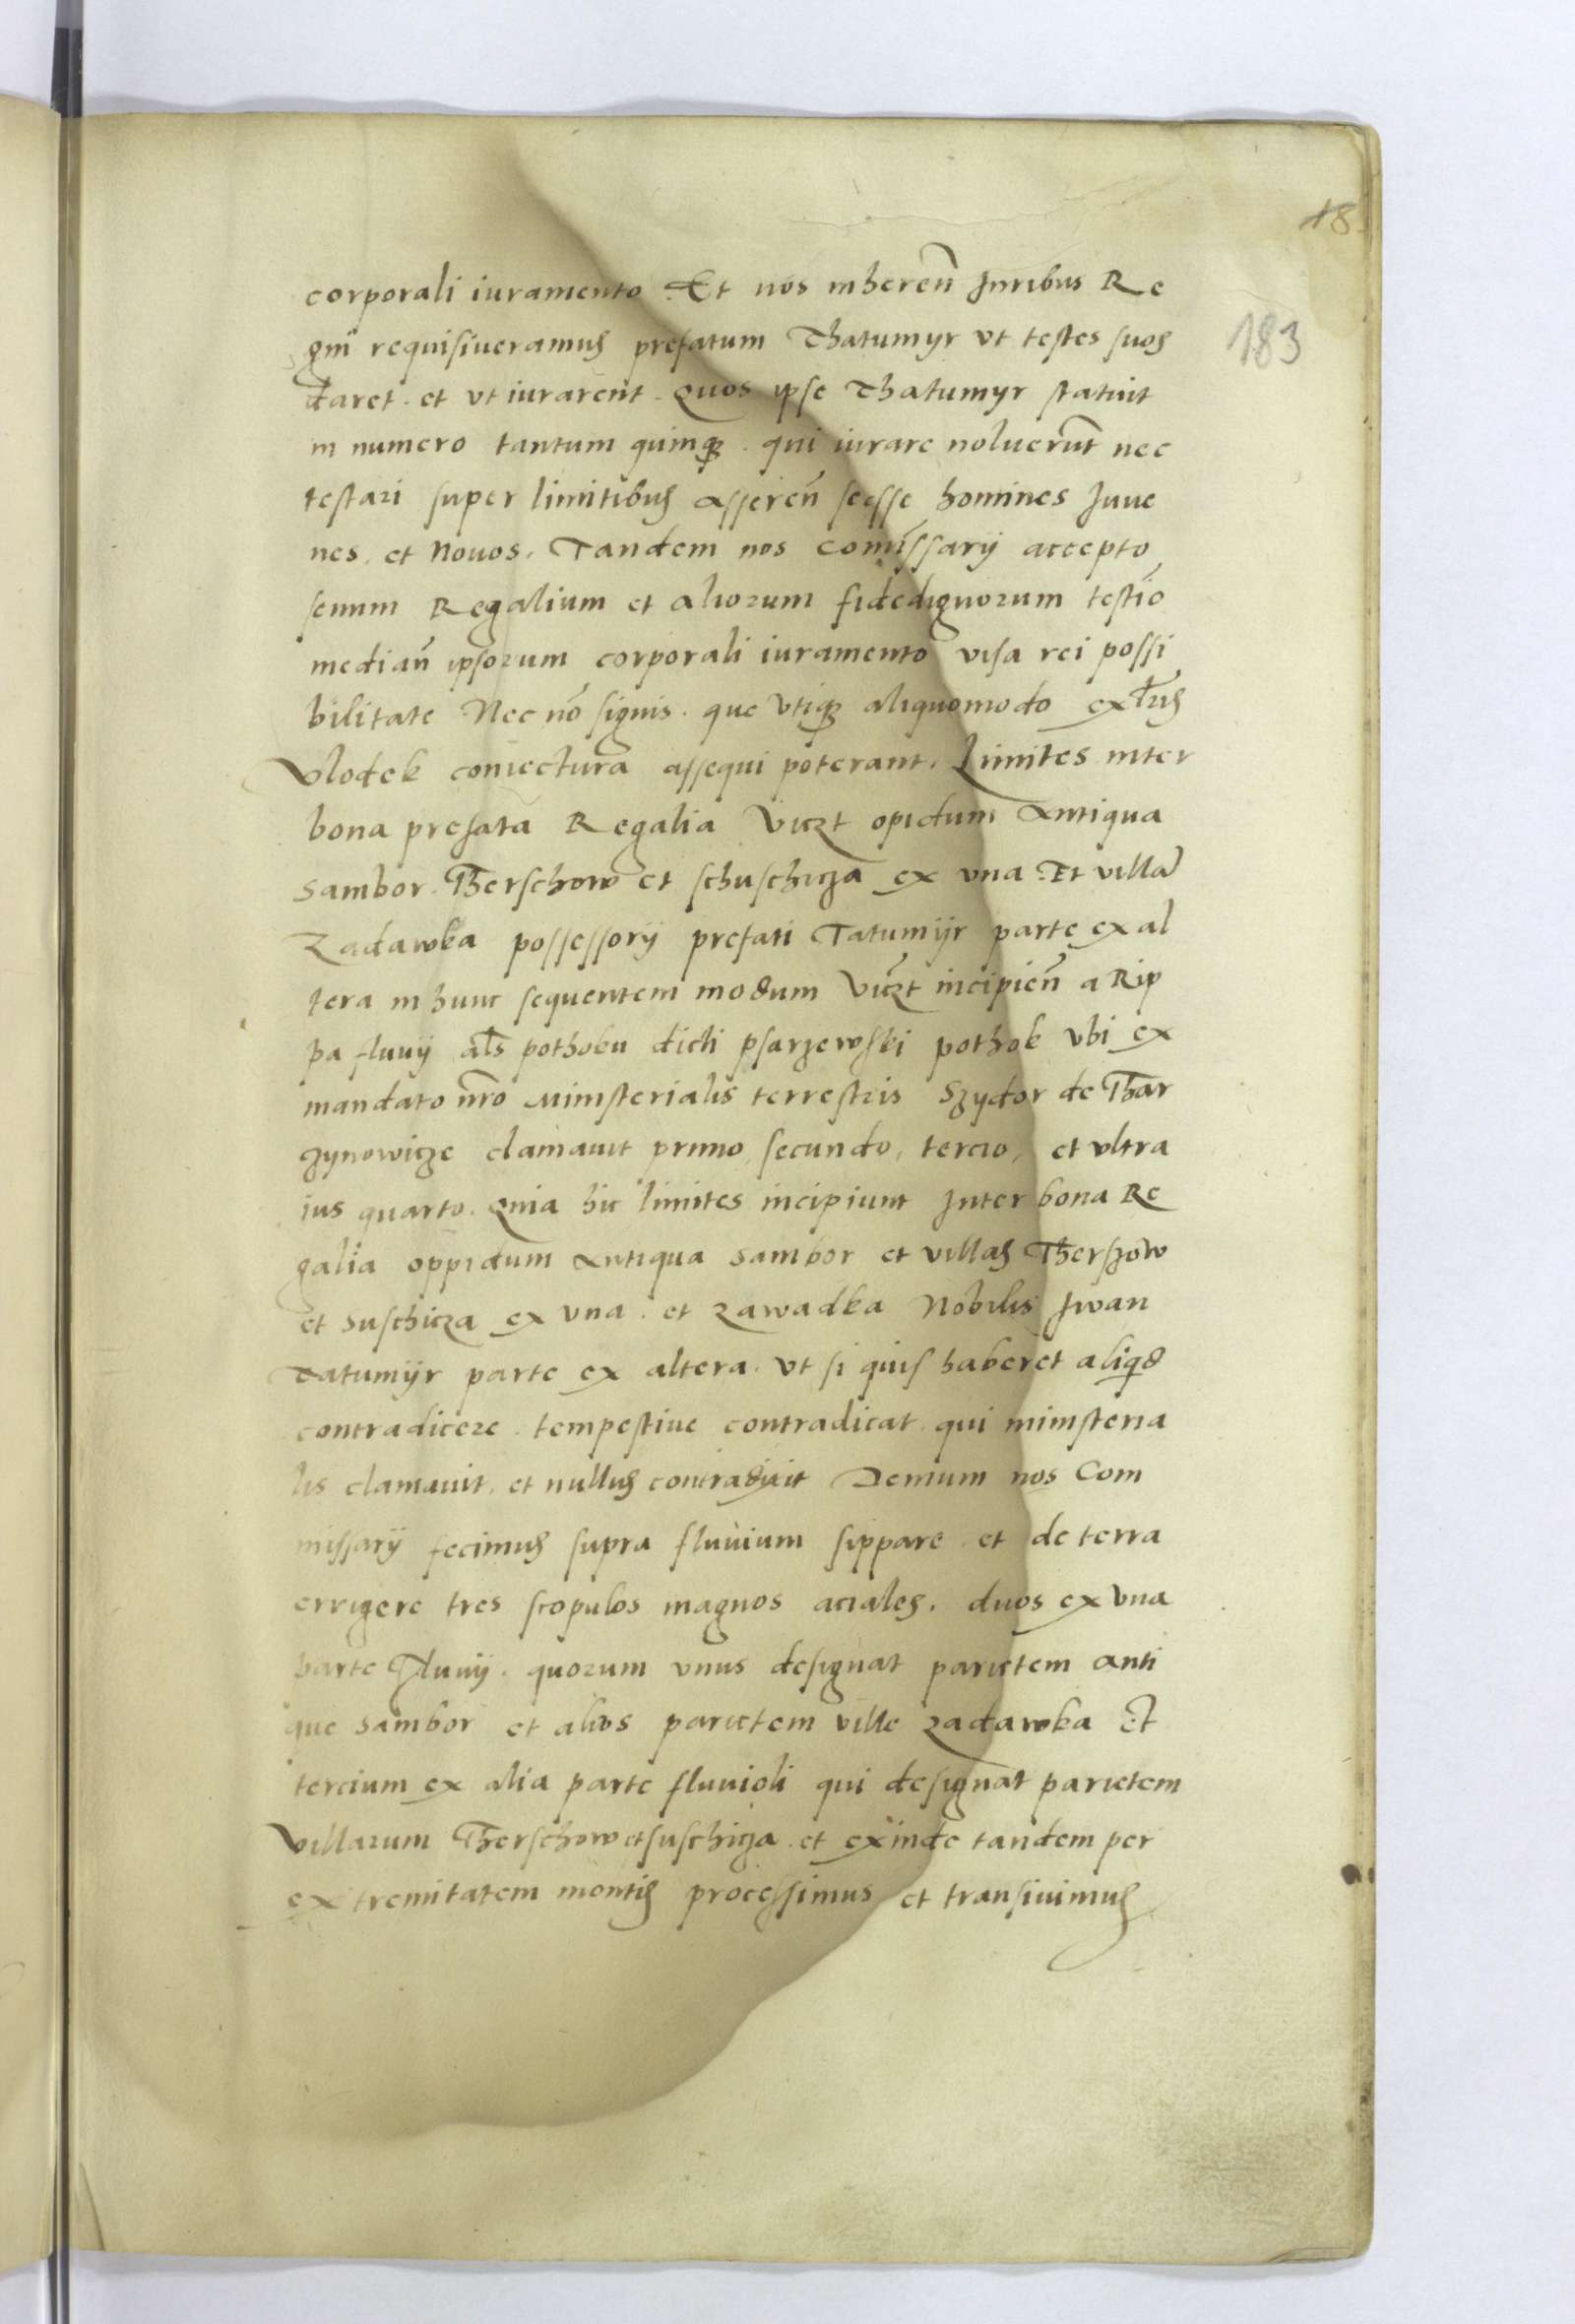 18
183
corporali iuramento. Et nos inheren̄ Juribus Re
gni requisiueramus prefatum Thatumyr vt testes suos
daret. et vt iurarent. Quos ipse Thatumyr statuit
in numero tantum quinqz. qui iurare noluerūt nec
testari super limitibus asseren̄ se esse homines Juue
nes. et Nouos. Tandem nos Comissarij accepto
senum Regalium et aliorum fidedignorum testīo
median̄ ipsorum corporali iuramento visa rei possi
bilitate Nec nō signis. que vtiqz aliquomodo
Vlodek coniectura assequi poterant. Limites inter
bona prefata Regalia Viczt opidum Antiqua
Sambor. Therschow et schuschicza ex vna Et villa
Zadawka possessorij prefati Tatumijr parte ex al
tera in hunc sequentem modum Viczt incipien̄ a Rip
pa fluuij als pothoku dicti psarzewski pothok vbi ex
mandato nrō Ministerialis terrestris Szydor de Thar
zynowicze clamauit primo, secundo, tercio, et vltra
ius quarto. Quia hic limites incipiunt Inter bona Re
galia oppidum Antiqua Sambor et villas Therszow
et Suschicza ex vna. et Zawadka Nobilis Iwan
Tatumijr parte ex altera. vt si quis haberet aliqd
contradicere. tempestiue contradicat. qui ministeria
lis clamauit. et nullus contradixit Demum nos Com
missarij fecimus supra fluuium sippare et de terra
errigere tres scopulos magnos aciales. duos ex vna
parte Fluuij. quorum vnus designat parietem Anti
que Sambor et alios parietem ville Zadawka Et
tercium ex alia parte fluuioli qui designat parietem
Villarum Therschow et suschicza. et exinde tandem per
extremitatem montis processimus et transiuimus